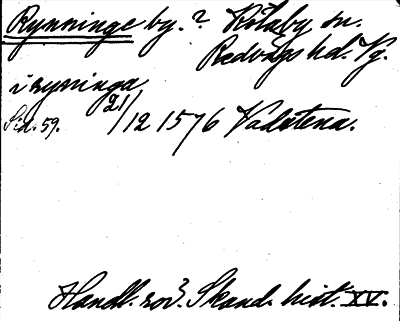 Rynninge by.? Kölaby sn.
Redvägs hd. Vg.
i ryninga
Sid. 59. 21/12 1576 Vadstena.
Handl. rör. Skand. hist. XV.